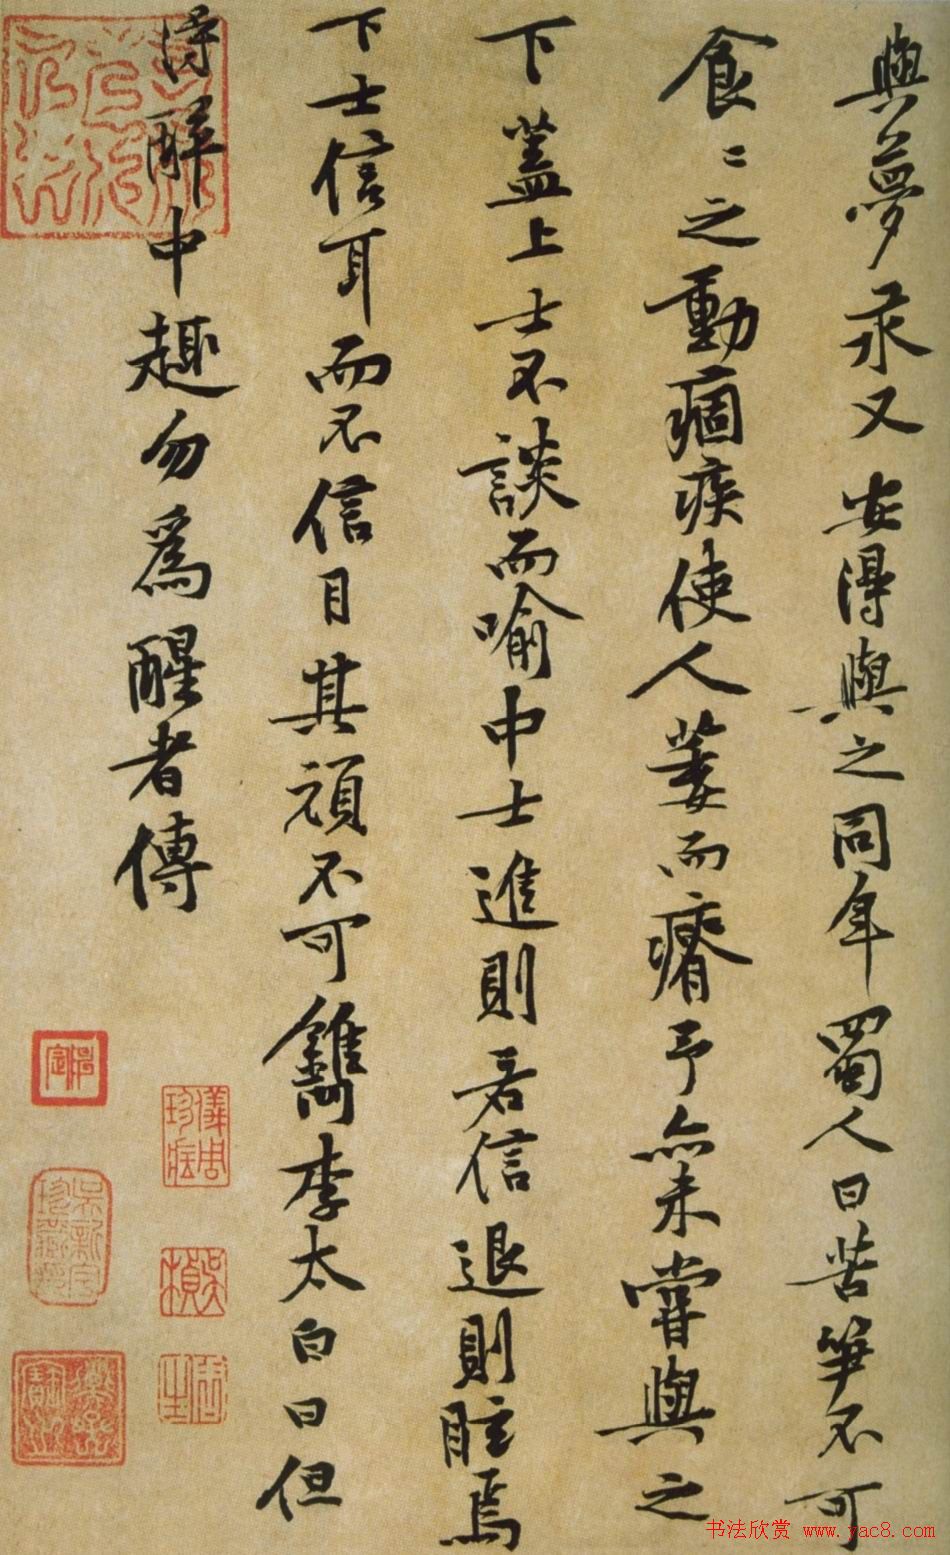 與夢永又安得與之同年蜀人曰苦筍不可
食〻之動痼疾使人萎而瘠予亦未嘗與之
下蓋上士不談而喻中士進則若信退則眩焉
下士信耳而不信目其頑不可鐫李太白曰但
得醉中趣勿爲醒者傳
儀周珍藏
吳新宇珍藏印
吳楨
书法欣赏 www.yac8.com